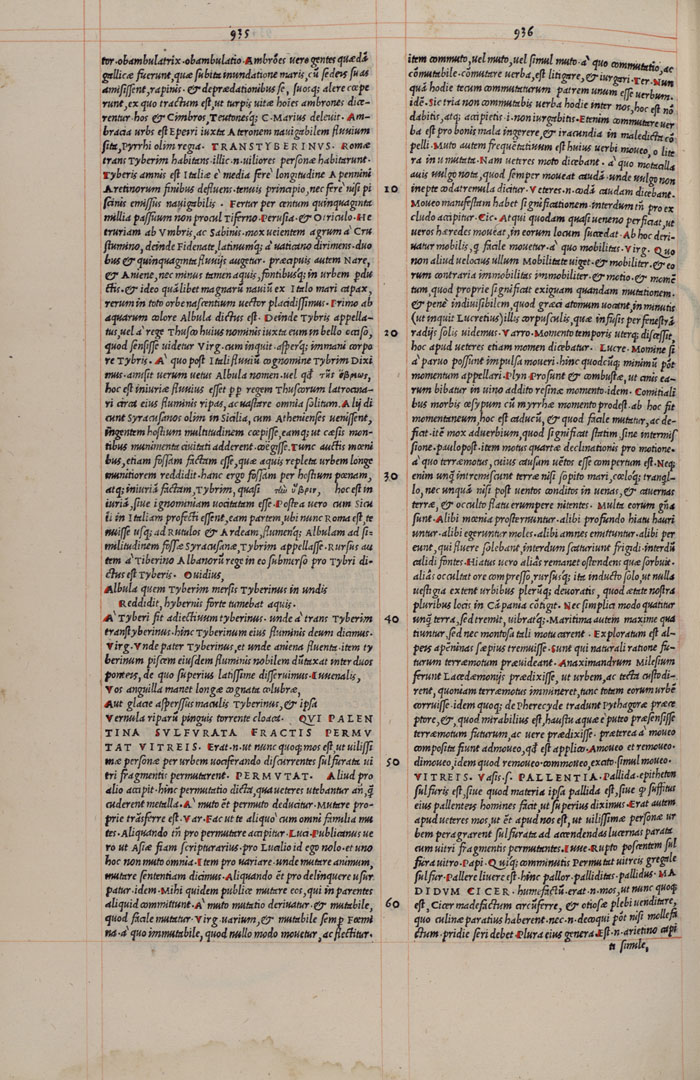 935
tor·obambulatrix·obambulatio·Ambrões uero gentes quædã
gallicæ fuerunt, quæ subita inundatione maris, cũ sedeis suas
amisissent, rapinis·& deprædationibus se, suosq; alere cœpe
runt, ex quo tractum est, ut turpis uitæ hoĩes ambrones dice-
rentur·hos & Cimbros, Teutonesq; C·Marius deleuit·Am-
bracia urbs est Epesri iuxta Ateronem nauigabilem fluuium
sita, Pyrrhi olim regia· TRANSTYBERINVS· Romæ
trans Tyberim habitans·illic·n·uiliores personæ habitarunt·
Tyberis amnis est Italiæ è media ferè longitudine Apennini
Aretinorum finibus defluens·tenuis principio, nec ferè nisi pi
scinis emissus nauigabilis· Fertur per centum quinquaginta
millia passuum non procul Tiferno·Perusia·& Otriculo·He
truriam ab Vmbris, ac Sabinis·mox ueientem agrum à Cru
stumino, deinde Fidenate, latinumq; à uaticano dirimens·duo
bus & quinquaginta fluuijs augetur·præcipuis autem Nare,
& Aniene, nec minus tamen aquis, fontibusq; in urbem pdu
ctis·& ideo quãlibet magnarũ nauiũ ex Italo mari capax,
rerum in toto orbe nascentium uector placidissimus·Primo ab
aquarum colore Albula dictus est· Deinde Tybris appella-
tus, uel à rege Thusco huius nominis iuxta eum in bello occiso,
quod sensisse uidetur Virg·cum inquit·asperq; immani corpo
re Tybris·A quo post Itali fluuiũ cognomine Tybrim Dixi
mus·amisit uerum uetus Albula nomen·uel qđ τῆς ὕβρεως,
hoc est iniuriæ fluuius esset pp regem Thuscorum latrocina-
ri circa eius fluminis ripas, ac uastare omnia solitum·Alij di
cunt Syracusanos olim in Sicilia, cum Athenienses uenissent,
ingentem hostium multitudinem cœpisse, eamq; ut cæsis mon-
tibus munimenta ciuitati adderent·coëgisse·Tunc auctis mœni
bus, etiam fossam factam esse, quæ aquis repleta urbem longe
munitiorem reddidit·hanc ergo fossam per hostium pœnam,
atq; iniuriã factam, Tybrim, quasi τὴν ὕβριν, hoc est in
iuriã, siue ignominiam uocitatam esse·Postea uero cum Sicu
li in Italiam profecti essent, eam partem, ubi nunc Roma est, te
nuisse usq; ad Rutulos & Ardeam, flumenq; Albulam ad si-
militudinem fossæ Syracusanæ, Tybrim appellasse·Rursus au
tem à Tiberino Albanorũ rege in eo submerso pro Tybri di-
ctus est Tyberis· Ouidius,
Albula quem Tyberim mersis Tyberinus in undis
Reddidit, hybernis forte tumebat aquis·
A Tyberi fit adiectiuum tyberinus·unde à trans Tyberim
transtyberinus·hinc Tyberinum eius fluminis deum dicimus·
Virg·Vnde pater Tyberinus, et unde aniena fluenta·item ty
berinum piscem eiusdem fluminis nobilem dũtaxat inter duos
ponteis, de quo superius latissime disseruimus·Iuuenalis,
Vos anguilla manet longæ cognata colubræ,
Aut glacie aspersus maculis Tyberinus, & ipsa
Vernula riparũ pinguis torrente cloaca· QVI PALEN
TINA SVLFVRATA FRACTIS PERMV
TAT VITREIS· Erat·n·ut nunc quoq; mos est, ut uilissi
mæ personæ per urbem uociferando discurrentes sulfurata ui
tri fragmentis permutarent· PERMVTAT· Aliud pro
alio accipit·hinc permutatio dicta, qua ueteres utebantur añ, q̃
cuderent metalla·A muto ẽt permuto deducitur·Mutare pro-
prie trãsferre est·Var·Fac ut te aliquò cum omni familia mu
tes·Aliquando tñ pro permutare accipitur·Luci·Publicanus ue
ro ut Asiæ fiam scripturarius·pro Lucilio id ego nolo·et uno
hoc non muto omnia·Item pro uariare·unde mutare animum,
mutare sententiam dicimus·Aliquando ẽt pro delinquere usur
patur·idem·Mihi quidem publice mutare eos, qui in parentes
aliquid committunt·A muto mutatio deriuatur·& mutabile,
quod facile mutatur·Virg·uarium, & mutabile semp Fœmi
na·à quo immutabile, quod nullo modo mouetur, ac flectitur·
936
item commuto, uel muto, uel simul muto·à quo commutatio, ac
cõmutabile·cõmutare uerba, est litigare, & iurgari·Ter·Nun
quã hodie tecum commutaturum patrem unum esse uerbum·
idẽ·Sic tria non commutabis uerba hodie inter nos, hoc est nõ
dabitis, atq; accipietis·i·non iurgabitis·Etenim commutare uer
ba est pro bonis mala ingerere, & iracundia in maledicta cõ
pelli·Muto autem frequẽtatiuum est huius uerbi moueo, o lite
ra in u mutata·Nam ueteres moto dicebant·à quo motacilla
auis uulgo nota, quod semper moueat caudã·unde uulgo non
10 inepte codatremula dicitur·Veteres·n·codã caudam dicebant·
Moueo manifestam habet significationem·interdum tñ pro ex
cludo accipitur·Cic·Atqui quodam quasi ueneno perficiat, ut
ueros hæredes moueat, in eorum locum succedat·Ab hoc deri-
uatur mobilis, q̃ facile mouetur·à quo mobilitas·Virg·Quo
non aliud uelocius ullum Mobilitate uiget·& mobiliter·& eo
rum contraria immobilitas immobiliter·& motio·& momẽ
tum, quod proprie significat exiguam quandam mutationem·
& penè indiuisibilem, quod græci atomum uocant, in minutis
(ut inquit Lucretius) illis corpusculis, quæ infusis per fenestrã
20 radijs solis uidemus·Varro·Momento temporis uterq; discessit,
hoc apud ueteres etiam momen dicebatur· Lucre·Momine si
à paruo possunt impulsa moueri·hinc quodcũq; minimũ põt
momentum appellari·Plyn·Prosunt & combustæ, ut cinis ea-
rum bibatur in uino addito resinæ momento·idem·Comitiali
bus morbis œsypum cũ myrrhæ momento prodest·ab hoc fit
momentaneum, hoc est caducũ, & quod facile mutatur, ac de-
ficit·itẽ mox aduerbium, quod significat statim, sine intermis
sione·paulopost·item motus quartæ declinationis pro motione·
à quo terræmotus, cuius causam uẽtos esse compertum est·Neq;
30 enim unq̃ intremiscunt terræ nisi sopito mari, cœloq; tranqil-
lo, nec unquã nisi post uentos conditos in uenas, & cauernas
terræ, & occulto flatu erumpere nitentes· Multa eorum gña
sunt·Alibi mœnia prosternuntur·alibi profundo hiatu hauri
untur·alibi egeruntur moles·alibi amnes emittuntur·alibi per
eunt, qui fluere solebant, interdum scaturiunt frigidi·interdũ
calidi fontes·Hiatus uero aliàs remanet ostendens quæ sorbuit·
aliàs occultat ore compresso, rursusq; ita inducto solo, ut nulla
uestigia extent urbibus plerũq; deuoratis, quod ætate nostra
pluribus locis in Cãpania cõtigit·Nec simplici modo quatitur
40 unq̃ terra, sed tremit, uibratq;·Maritima autem maxime qua
tiuntur, sed nec montosa tali motu carent· Exploratum est al-
peis apeninas sæpius tremuisse·Sunt qui naturali ratione fu-
turum terræmotum præuideant·Anaximandrum Milesium
ferunt Lacedæmonijs prædixisse, ut urbem, ac tecta custodi-
rent, quoniam terræmotus immineret, tunc totam eorum urbẽ
corruisse·idem quoq; de Pherecyde tradunt Pythagoræ præce
ptore, &, quod mirabilius est, haustu aquæ è puteo præsensisse
terræmotum futurum, ac uere prædixisse· præterea à moueo
composita fiunt admoueo, qđ est applico·Amoueo et remoueo·
50 dimoueo, idem quod remoueo·commoueo, excito·simul moueo·
VITREIS· Vasis·s· PALLENTIA·Pallida·epitheton
sulfuris est, siue quod materia ipsa pallida est, siue q̃ suffitus
eius pallenteis homines facit, ut superius diximus·Erat autem
apud ueteres mos, ut ẽt apud nos est, ut uilissimæ personæ ur
bem peragrarent sulfurata ad accendendas lucernas parata
cum uitri fragmentis permutantes·Iuue·Rupto poscentem sul
fura uitro·Papi·Quiq; comminutis Permutat uitreis gregale
sulfur·Pallere liuere est·hinc pallor·palliditas·pallidus· MA
DIDVM CICER· humefactũ·erat·n·mos, ut nunc quoq;
60 est, Cicer madefactum circũferre, & otiosæ plebi uenditare,
quo culinæ paratius haberent·nec·n·decoqui põt nisi mollefa
ctum·pridie seri debet·Plura eius genera·Est·n·arietino capi
ti simile,